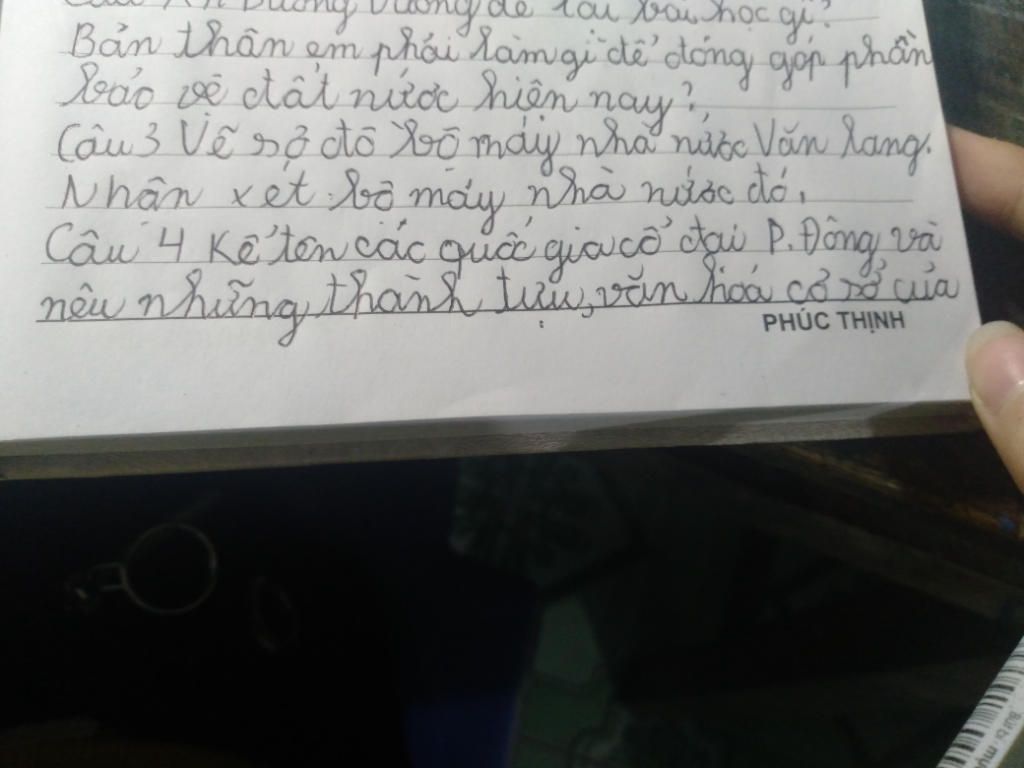 Dương Vương để lại bài học gì?
Bản thân em phải làm gì để đóng góp phần
bảo vệ đất nước hiện nay?
Câu 3 Vẽ sơ đồ bộ máy nhà nước Văn Lang.
Nhận xét bộ máy nhà nước đó.
Câu 4 Kể tên các quốc gia cổ đại P. Đông và
nêu những thành tựu, văn hóa cơ sở của
PHÚC THỊNH
Bút bi